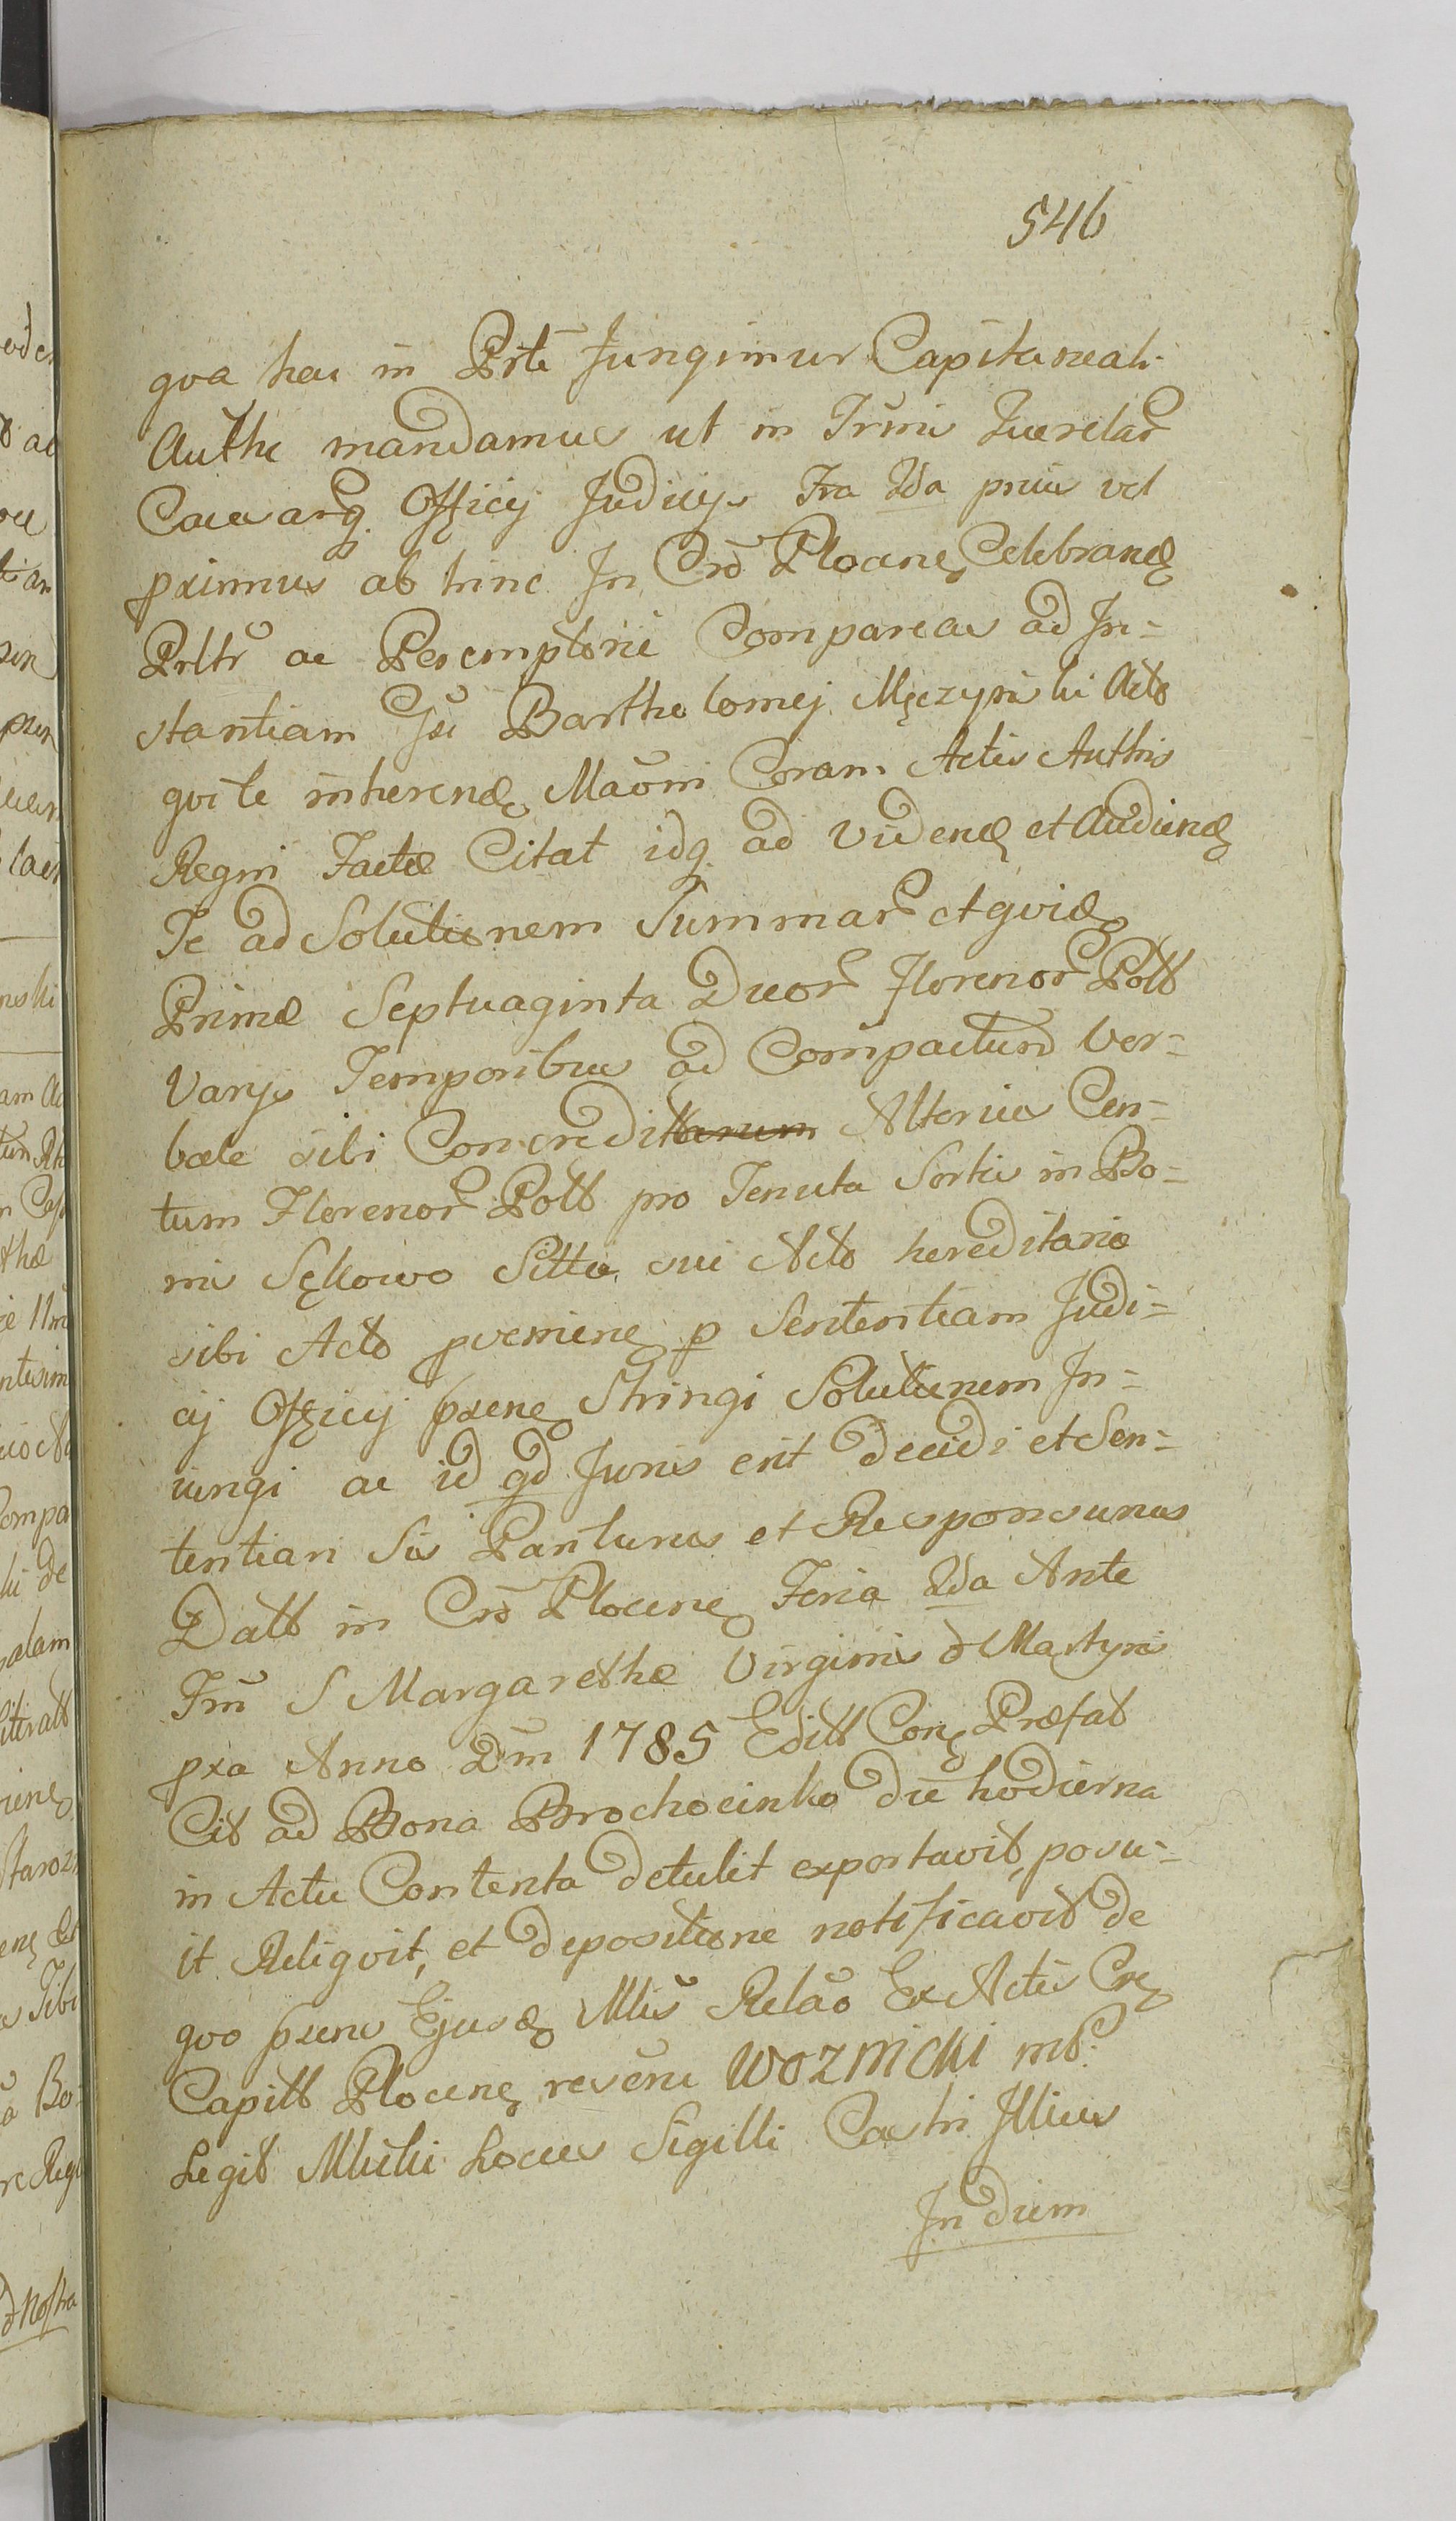 546
qva hac in Prte Jungimur Capitaneali
Authe mandamus ut in Trmis Qverelar
Causarq Officy Judicys Fra 2da prius vel
pximus ab hinc In Cro Plocen Celebrand
Prltr ac Peremptorie Compareas ad In=
stantiam Gsi Bartholomej Męczyński Acto
qvi te inherend Maoni Coram Actis Authis
Regni Factæ Citat idq ad Videnđ et Audienđ
Te ad Solutionem Summar et qvid
Primæ Septuaginta Duor Florenor Poltt
Varys Temporibus ad Compactum Ver=
bale sibi Concredittarum Alterius Cen=
tum Florenor Poltt pro Tenuta Sortis in Bo=
nis Sękowo Sittæ sui Acto hereditariæ
sibi Acto pvenien p Sententiam Judi=
cy Officy pxen Stringi Solutionem In=
iungi ac id qd Juris erit decidi et Sen=
tentiari Sis Pariturus et Responsurus
Datt in Cro Plocen Feria 2da Ante
Fm S Margarethæ Virginis & Martyris
pxa Anno Dm 1785 Editt Con Præfat
Cit ad Bona Brochocinko die hodierna
in Actu Contenta detulit exportavit, posu=
it Reliqvit, et depositione notificavit de
qvo pxens Ejusd Mlis Relao Ex Actis Cr
Capitt Plocen rescru WOZNICKI mp
Legit Mlicki Locus Sigilli Castri Illius
In diem